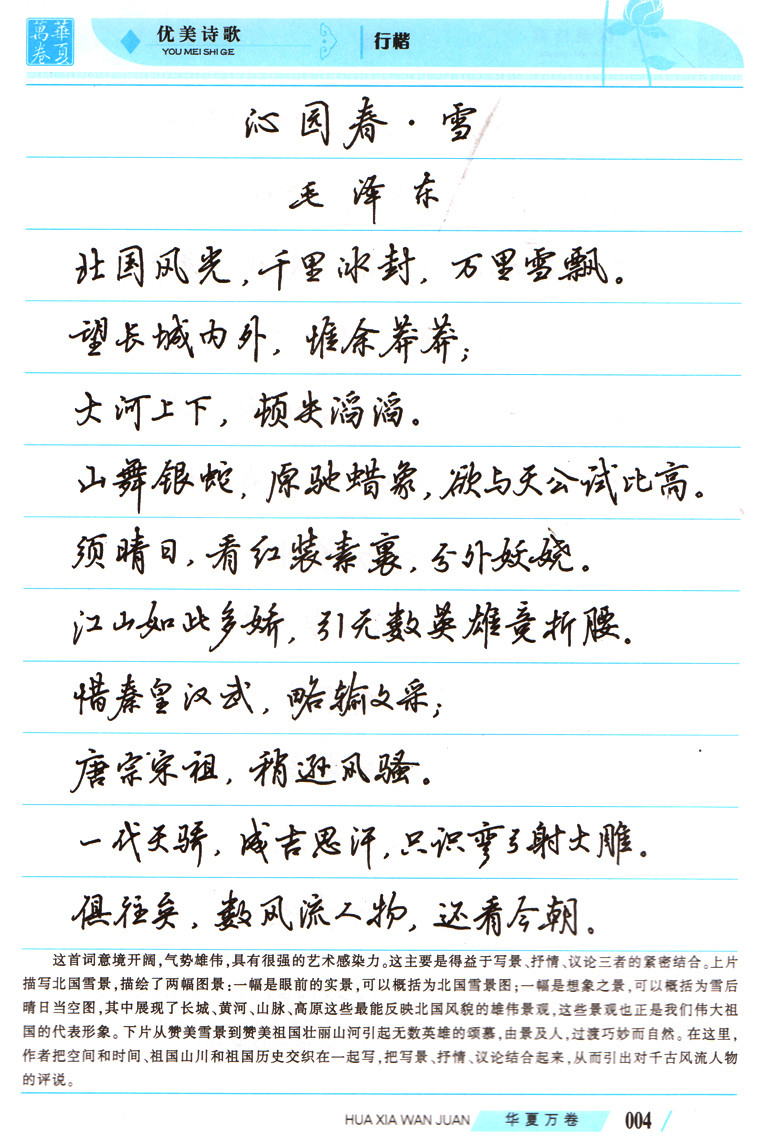 華夏萬卷
优美诗歌
YOU MEI SHI GE
行楷
沁园春·雪
毛泽东
北国风光,千里冰封,万里雪飘。
望长城内外,惟余莽莽;
大河上下,顿失滔滔。
山舞银蛇,原驰蜡象,欲与天公试比高。
须晴日,看红装素裹,分外妖娆。
江山如此多娇,引无数英雄竞折腰。
惜秦皇汉武,略输文采;
唐宗宋祖,稍逊风骚。
一代天骄,成吉思汗,只识弯弓射大雕。
俱往矣,数风流人物,还看今朝。
这首词意境开阔,气势雄伟,具有很强的艺术感染力。这主要是得益于写景、抒情、议论三者的紧密结合。上片
描写北国雪景,描绘了两幅图景:一幅是眼前的实景,可以概括为北国雪景图;一幅是想象之景,可以概括为雪后
晴日当空图,其中展现了长城、黄河、山脉、高原这些最能反映北国风貌的雄伟景观,这些景观也正是我们伟大祖
国的代表形象。下片从赞美雪景到赞美祖国壮丽山河引起无数英雄的颂慕,由景及人,过渡巧妙而自然。在这里,
作者把空间和时间、祖国山川和祖国历史交织在一起写,把写景、抒情、议论结合起来,从而引出对千古风流人物
的评说。
HUA XIA WAN JUAN 华夏万卷 004